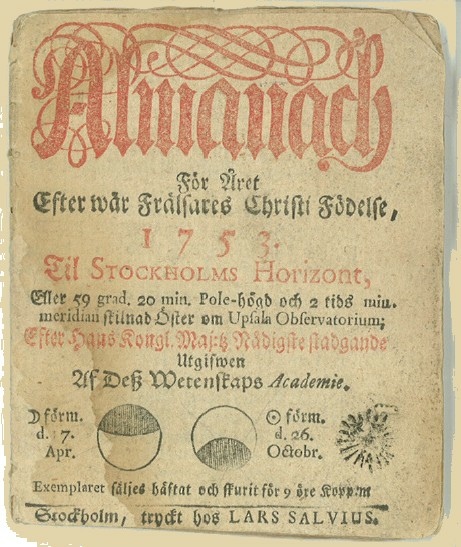 Almanach
För Året
Efter wår Frälsares Christi Födelse,
1753.
Til STOCKHOLMS Horizont,
Eller 59 grad. 20 min. Pole-högd och 2 tids min.
meridian skilnad Öster om Upsala Observatorium;
Efter Hans Kongl. Maj:tz Nådigste stadgande
Utgifwen
Af Deß Wetenskaps Academie.
☽ förm.
d. 17.
Apr.
☉ förm.
d. 26.
Octobr.
Exemplaret säljes häftat och skurit för 9 öre Kopp:m
Stockholm, tryckt hos LARS SALVIUS.